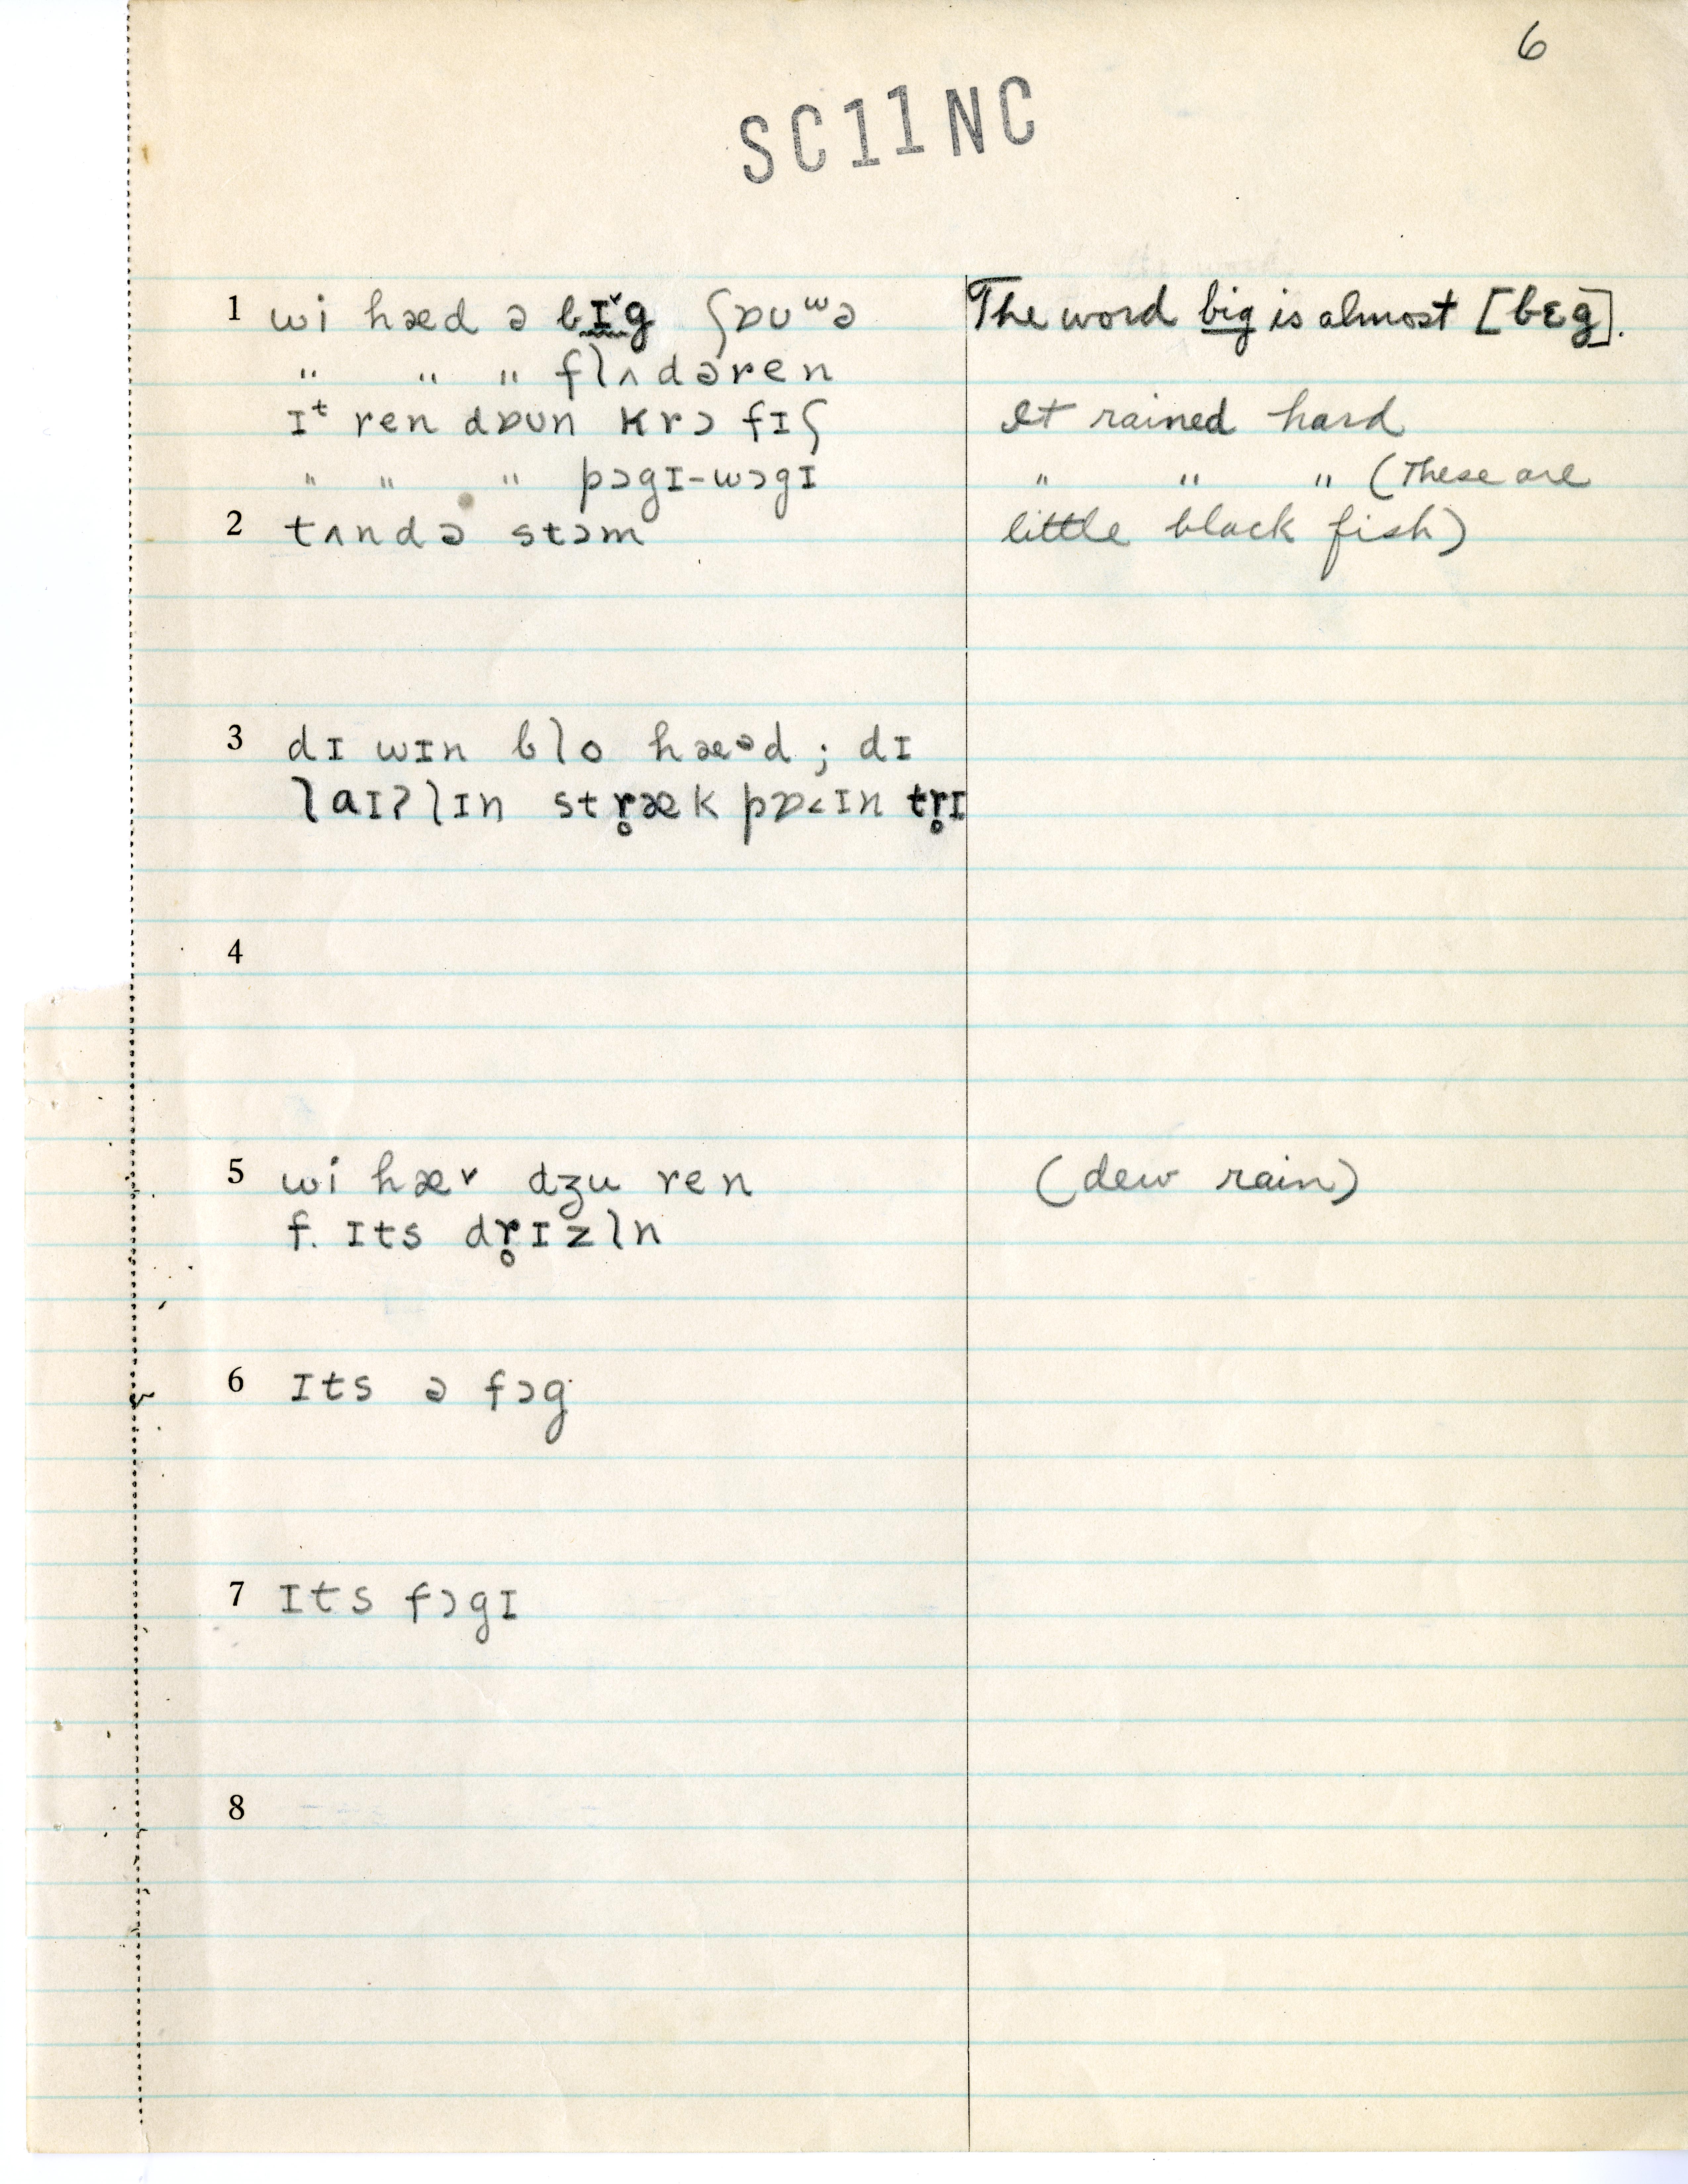 6
SC11NC
1 wi hæd ə bɪ̬g ʃɒuʷə The word big is almost [bɛg].
" " " flʌdəren
ɪᵗ ren dɒun krɔ fɪʃ It rained hard
" " " pɔgɪ-wɔgɪ " " " (These are
2 tʌndə stɔm little black fish)
3 dɪ wɪn blo hæᵊd ; dɪ
laɪʔlɪn str̥æk pɒ˂ɪn tr̥ɪ
4
5 wi hæv dʒu ren (dew rain)
f. ɪts dr̥ɪzln
6 ɪts ə fɔg
7 ɪts fɔgɪ
8